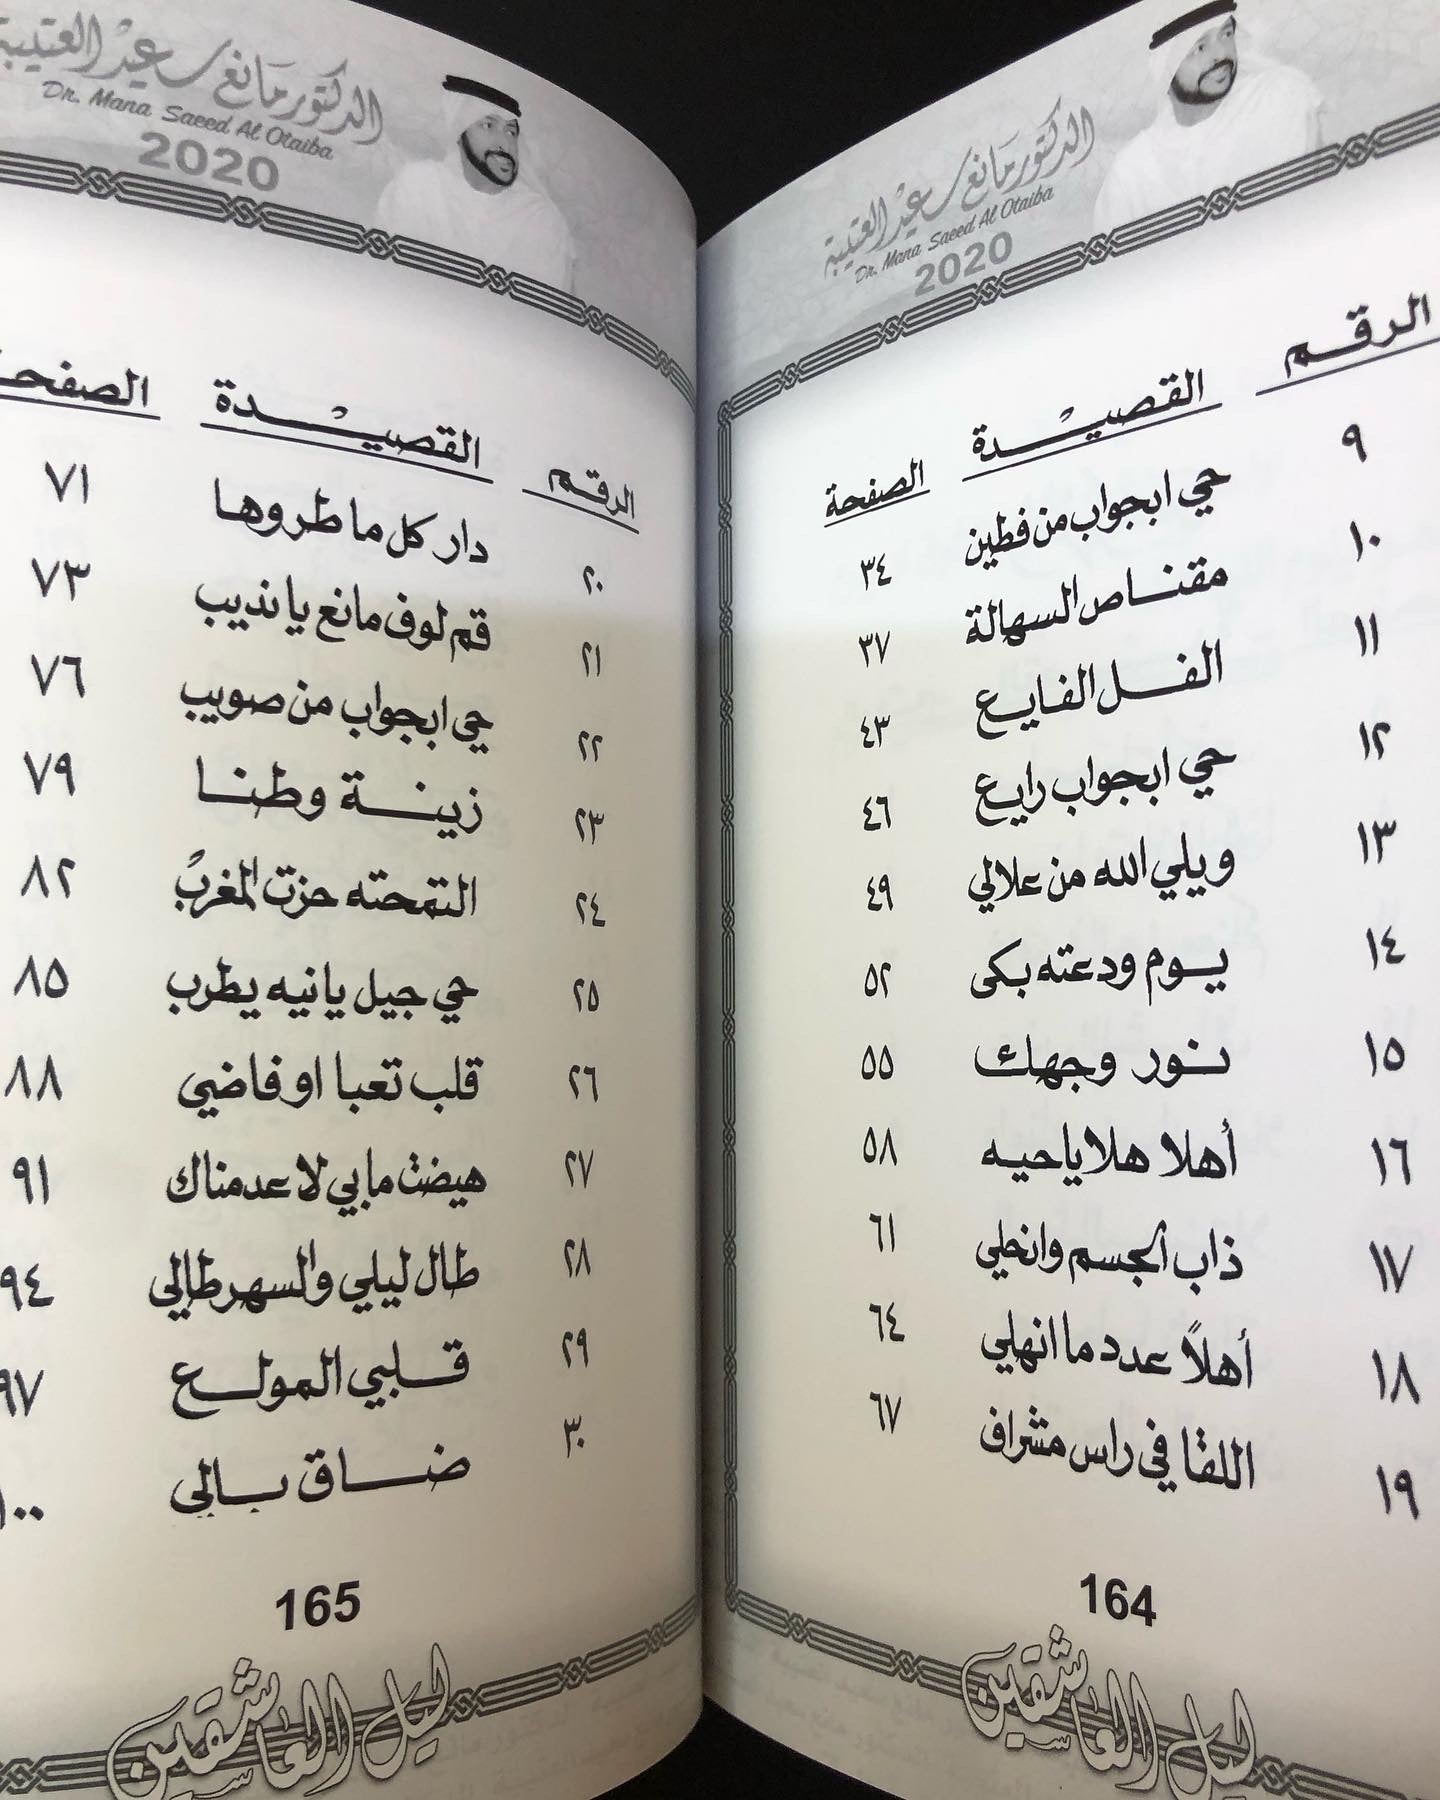 الدكتور مانع سعيد العتيبة
Dr. Mana Saeed Al Otaiba
2020
الرقم القصيدة الصفحة
٩ حي ابجواب من فطين ٣٤
١٠ مقناص السهالة ٣٧
١١ الفل الفايع ٤٣
١٢ حي ابجواب رايع ٤٦
١٣ ويلي الله من علالي ٤٩
١٤ يوم ودعته بكى ٥٢
١٥ نور وجهك ٥٥
١٦ أهلا هلا ياحيه ٥٨
١٧ ذاب الجسم وانحلي ٦١
١٨ أهلاً عدد ما انهلي ٦٤
١٩ اللقا في راس مشراف ٦٧
164
ليل العاشقين
الدكتور مانع سعيد العتيبة
Dr. Mana Saeed Al Otaiba
2020
الرقم القصيدة الصفحـ
٢٠ دار كل ما طروها ٧١
٢١ قم لوف مانع يا نديب ٧٣
٢٢ حي ابجواب من صويب ٧٦
٢٣ زينة وطنا ٧٩
٢٤ التمحته حزت المغربْ ٨٢
٢٥ حي جيل يانيه يطرب ٨٥
٢٦ قلب تعبا او فاضي ٨٨
٢٧ هيضت مابي لا عدمناك ٩١
٢٨ طال ليلي والسهر طالي ٩٤
٢٩ قلبي المولع ٩٧
٣٠ ضاق بالي ١٠٠
165
ليل العاشقين